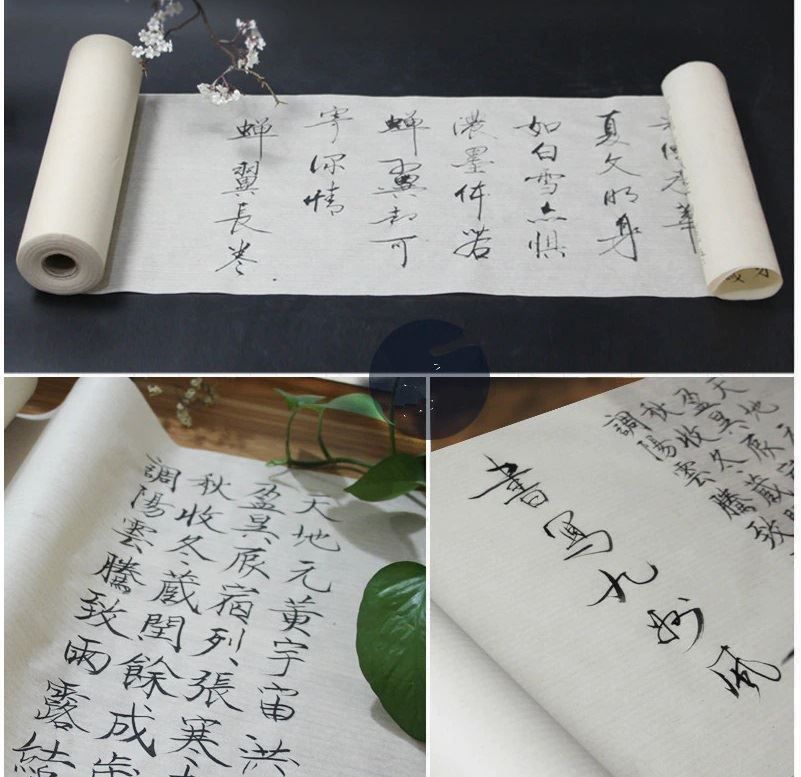 夏文明身
如白雪点惧
濃墨体若
蝉翼却可
寄深情
蝉翼長卷
天地元黄宇宙洪
盈昃辰宿列張寒
秋收冬蔵閏餘成歲
調陽雲騰致雨露結
天地元
盈昃辰
秋收冬蔵
調陽雲騰致
書写九州風